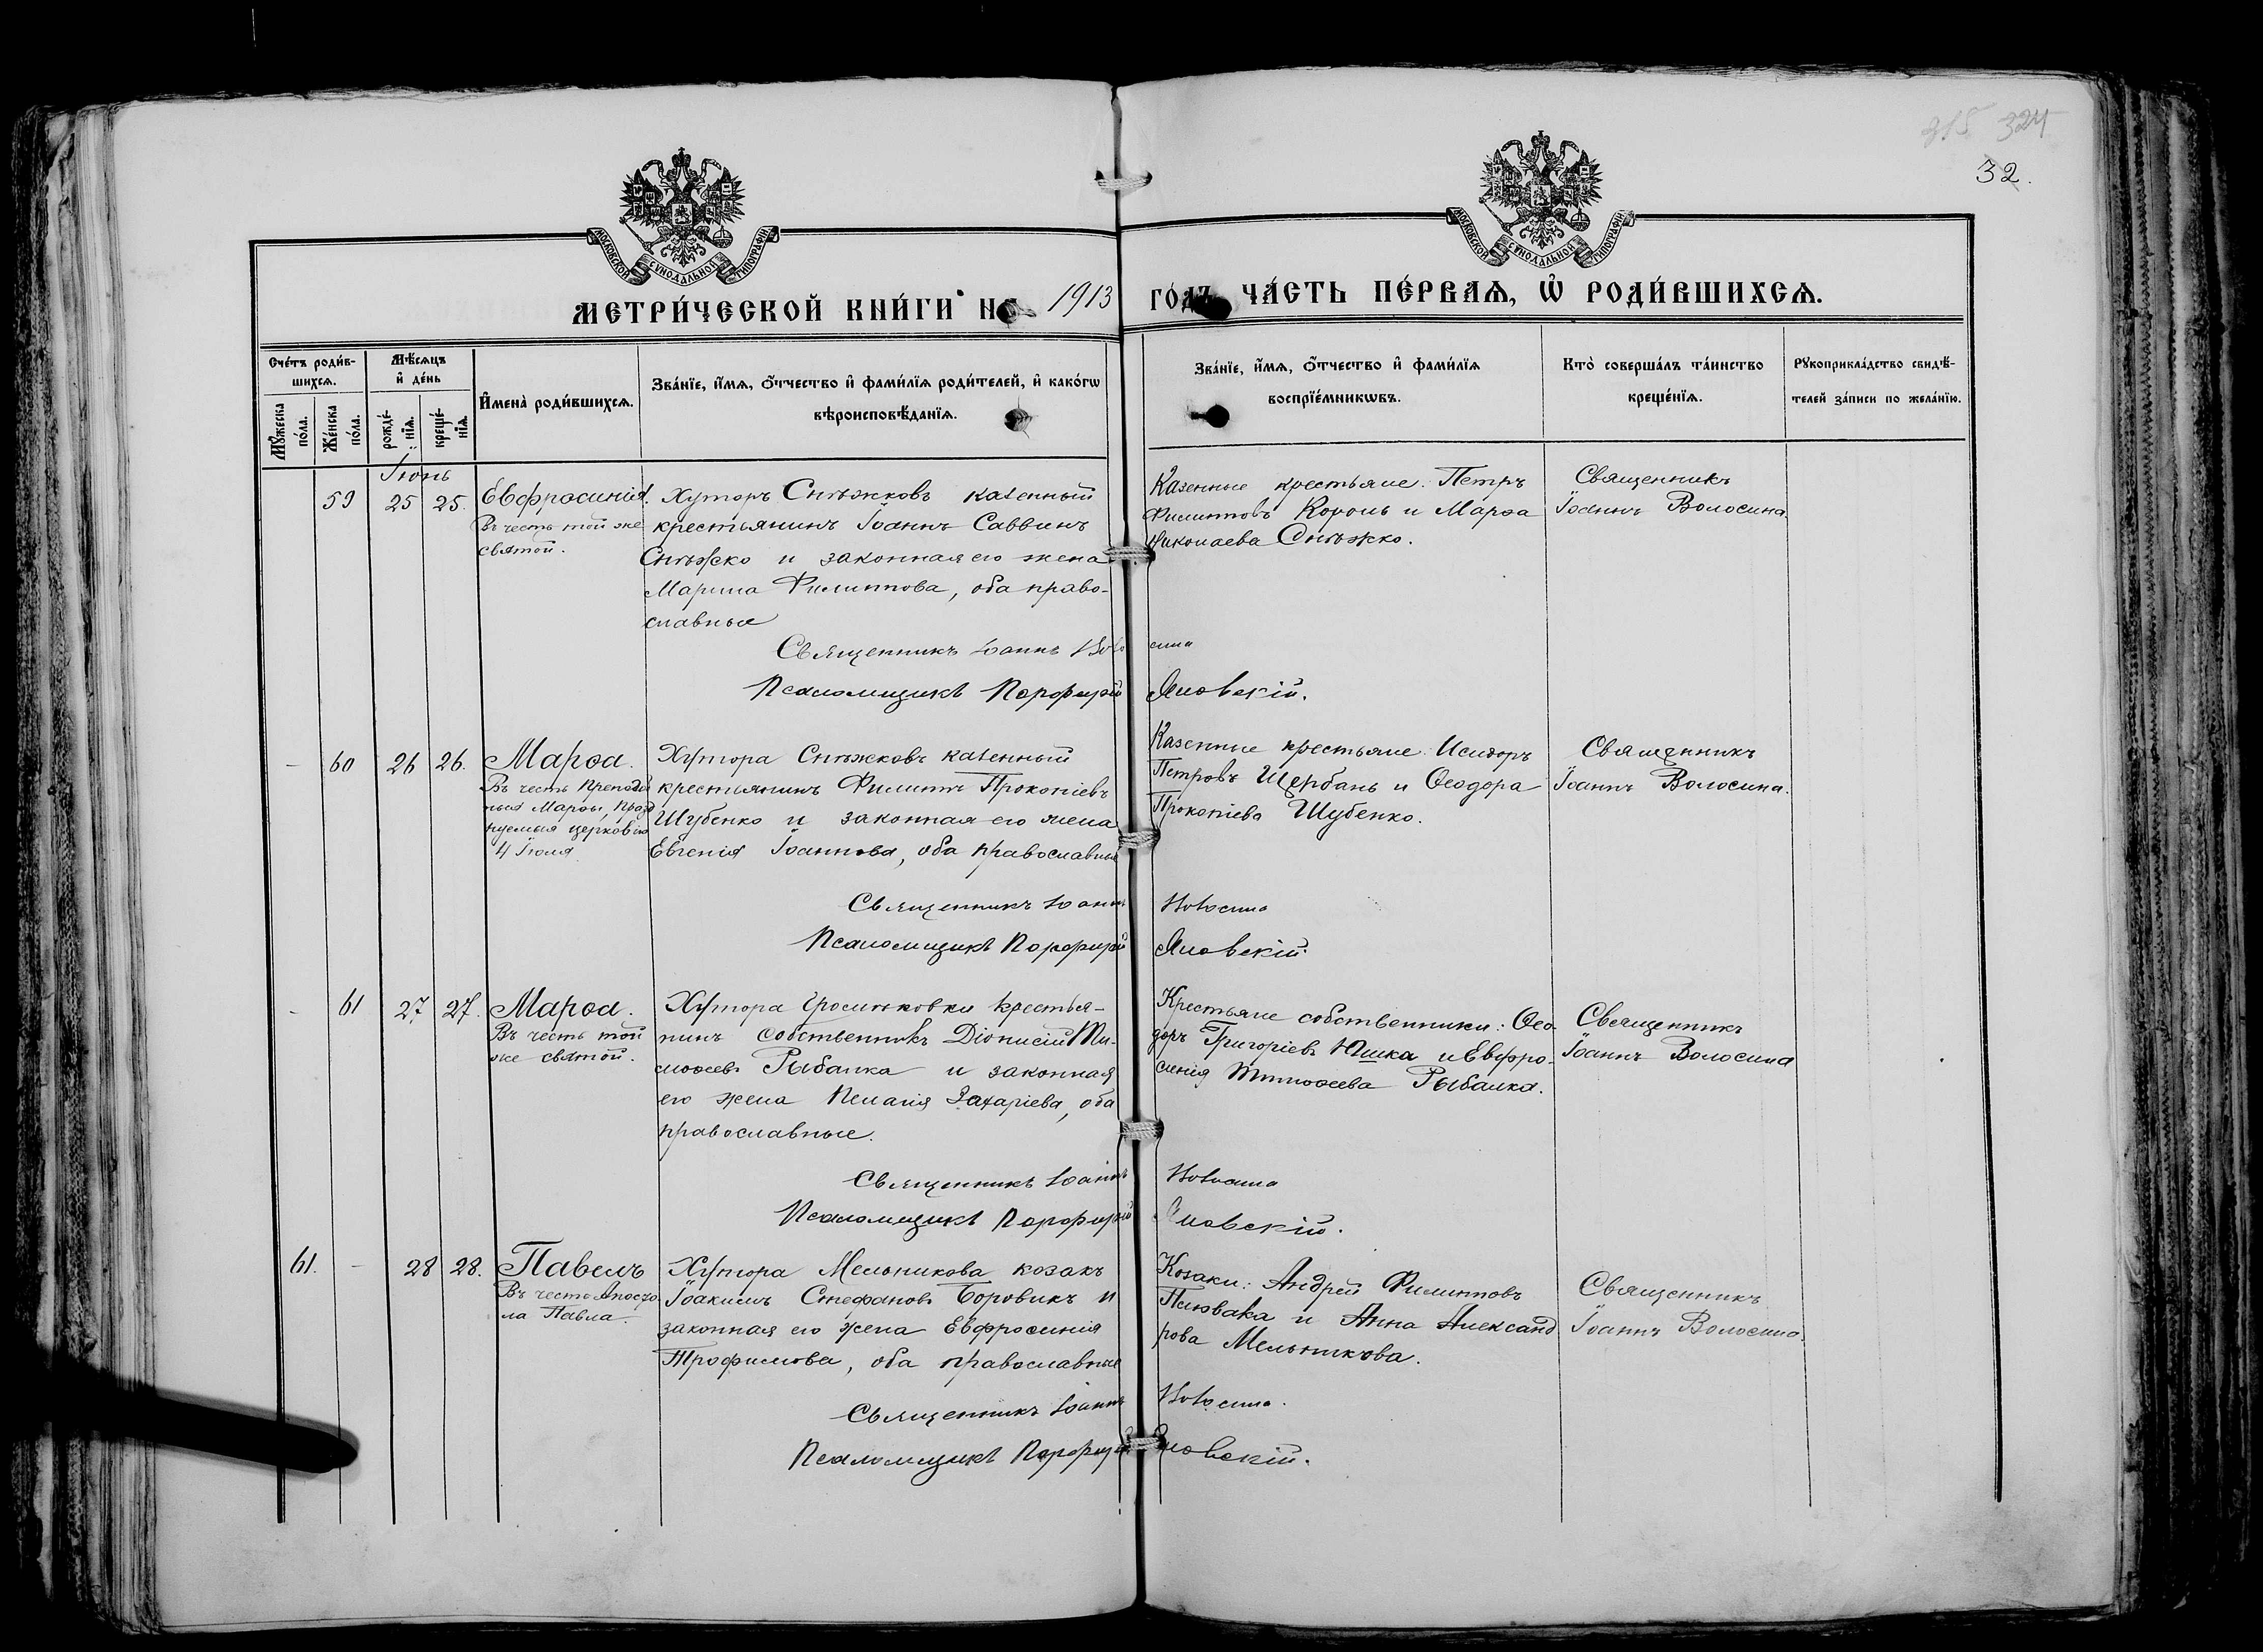 315 324
32.
МОСКОВСКОЙ СѴНОДАЛЬНОЙ ТИПОГРАФІИ
МОСКОВСКОЙ СѴНОДАЛЬНОЙ ТИПОГРАФІИ
МЕТРИ́ЧЕСКОЙ КНИ́ГИ НА 1913 ГО́ДЪ ЧА́СТЬ ПЕ́РВАѦ, Ѡ҆ РОДИ́ВШИХСѦ.
Сче́тъ роди́в-
шихсѧ.
Мꙋ́жеска
по́ла.
Же́нска
по́ла.
Мѣ́сѧцъ
и҆ де́нь
рожде́-
нїѧ.
креще́-
нїѧ.
И҆мена̀ роди́вшихсѧ.
Зва́нїе, и҆́мѧ, ѻ҆́тчество и҆ фами́лїѧ роди́телей, и҆ како́гѡ
вѣроисповѣ́данїѧ.
Зва́нїе, и҆́мѧ, ѻ҆́тчество и҆ фами́лїѧ
воспрїе́мникѡвъ.
Кто̀ соверша́лъ та́инство
креще́нїѧ.
Рꙋкоприкла́дство свидѣ́-
телей за́писи по жела́нїю.
Іюнь
59 25 25.
Евфросинія.
Въ честь той же
святой.
Хуторъ Снѣжковъ казенный
крестьянинъ Іоаннъ Саввинъ
Снѣжко и законная его жена
Марина Филиппова, оба право-
славные
Казенные крестьяне: Петръ
Филипповъ Король и Марѳа
Николаева Снѣжко.
Священникъ
Іоаннъ Волосина.
Священникъ Іоаннъ Волосина
Псаломщикъ Порфирій Яновскій.
- 60 26 26.
Марѳа.
Въ честь Преподоб
ныя Марѳы, празд
нуемыя церковію
4 Іюля.
Хутора Снѣжковъ казенный
крестьянинъ Филиппъ Прокопіевъ
Шубенко и законная его жена
Евгенія Іоаннова, оба православные
Казенные крестьяне: Исидоръ
Петровъ Щербань и Ѳеодора
Прокопіева Шубенко.
Священникъ
Іоаннъ Волосина.
Священникъ Іоаннъ Волосина
Псаломщикъ Порфирій Яновскій.
- 61 27 27.
Марѳа.
Въ честь той
же святой.
Хутора крестья-
нинъ собственникъ Діонисій Ти-
моѳеевъ Рыбалка и законная
его жена Пелагія Захаріева, оба
православные.
Крестьяне собственники: Ѳео-
доръ Григоріевъ Юшка и Евфро-
синія Тимоѳеева Рыбалка.
Священникъ
Іоаннъ Волосина
Священникъ Іоаннъ Волосина
Псаломщикъ Порфирій Яновскій.
61. - 28 28.
Павелъ
Въ честь Апосто
ла Павла.
Хутора Мельникова козакъ
Іоакимъ Стефановъ Боровикъ и
законная его жена Евфросинія
Трофимова, оба православные
Козаки: Андрей Филипповъ
Плювака и Анна Александ
рова Мельникова.
Священникъ
Іоаннъ Волосина.
Священникъ Іоаннъ Волосина.
Псаломщикъ Порфирій Яновскій.